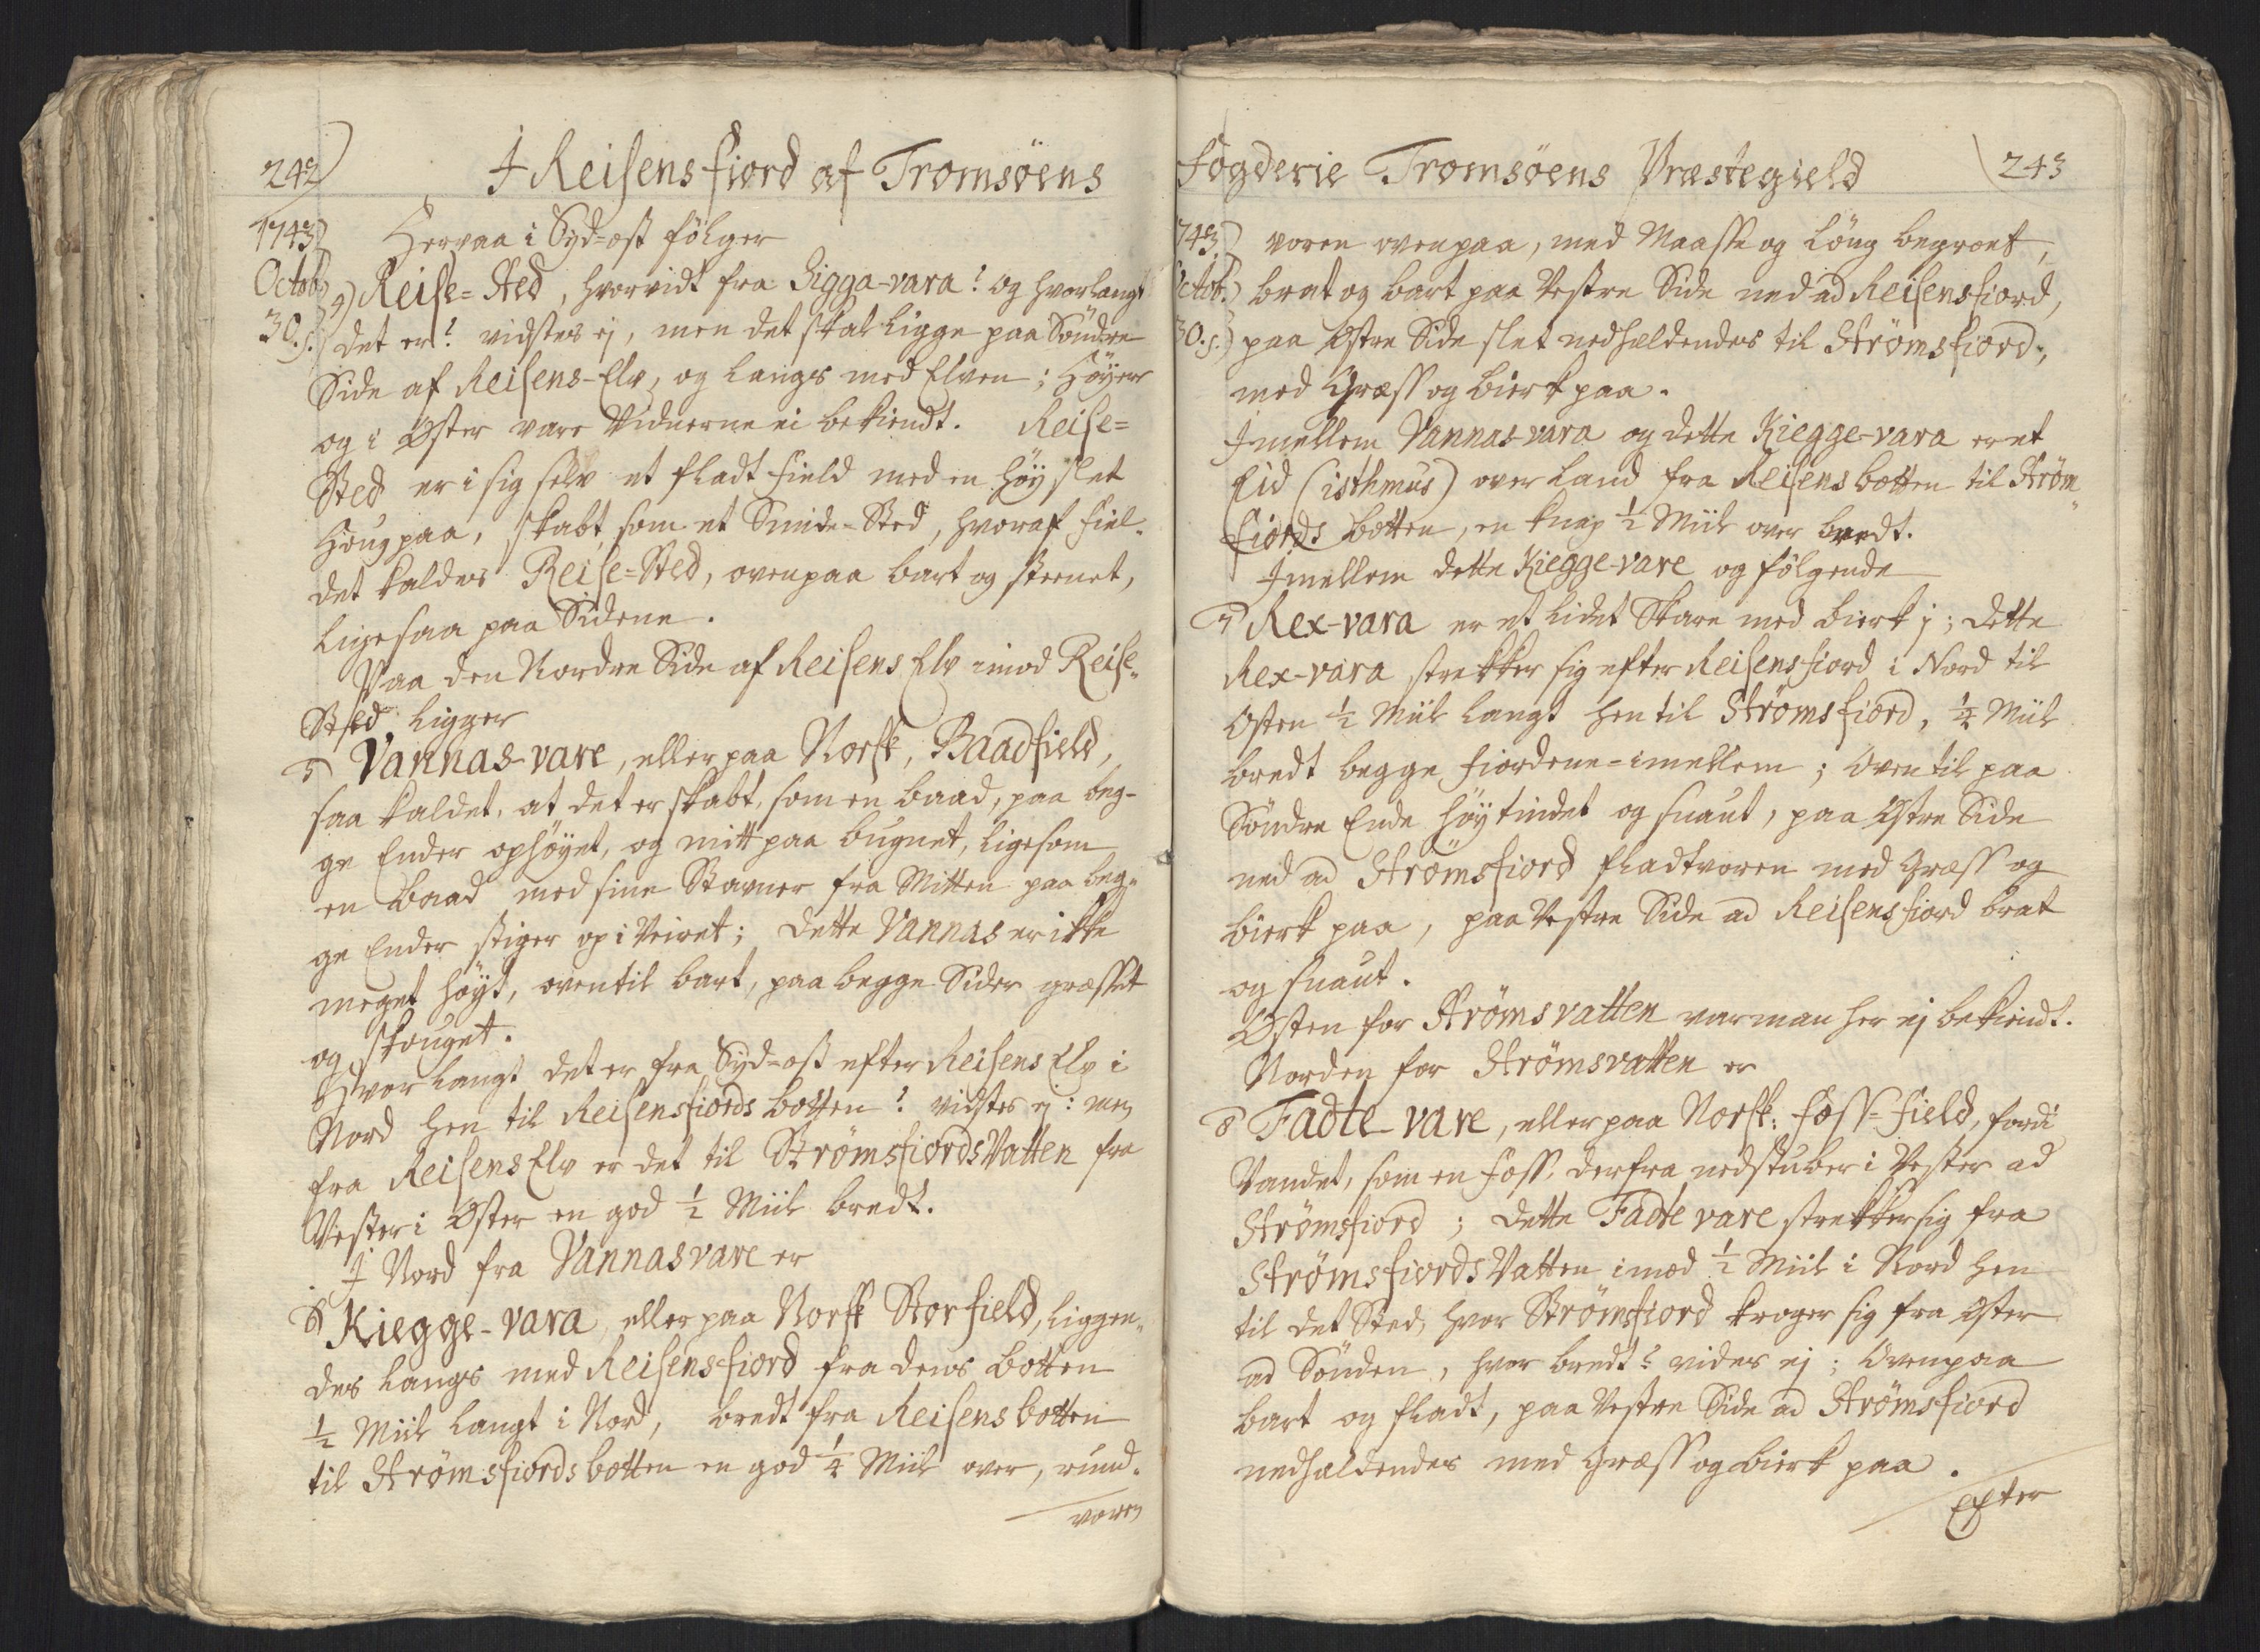 242)
I Reisens fiord af Tromsöens
1743)
Octob:)
30. s.)
Herpaa i Syd-ost fölger
4) Reise-Sted, hvorvidt fra Sigga-vara? og hvorlangt
det er? vidstes ej, men det skal ligge paa Söndre
Side af Reisens-Elv, og langs med Elven; Höyere
og i Öster vare Vidnerne ei bekiendt. Reise=
Sted er i sig selv et fladt field med en höy slet
Houg paa, skabt som et Smide-Sted, hvoraf fiel-
det kaldes Reise-Sted, ovenpaa bart og steenet,
ligesaa paa Sidene.
Paa den Nordre Side af Reisens Elv imod Reise-
Sted ligger
5 Vannas-vare, eller paa Norsk, Baadfield,
saa kaldet, at det er skabt, som en baad, paa beg-
ge Ender ophöyet, og mitt paa bugnet, ligesom
en Baad med sine Stavner fra Mitten paa beg-
ge Ender stiger op i Veiret; dette Vannas er ikke
meget höyt, oventil bart, paa begge Sider græsset
og skouget.
Hvor langt det er fra Syd-ost efter Reisens Elv i
Nord hen til Reisensfiords botten? vidstes ej: men
fra Reisens Elv er det til Strömsfiords Vatten fra
Vester i Öster en god ½ Miil bredt.
I Nord fra Vannasvare er
6 Kiegge-vara, eller paa Norsk Storfield, liggen-
des langs med Reisensfiord fra dens botten
½ Miil langt i Nord, bredt fra Reisens botten
til Strömsfiords botten en god ¼ Miil over, rund-
voren
Fogderie Tromsöens Præstegield
243
743)
ctob:)
30. s.)
voren ovenpaa, med Maasse og Löng begroet,
brat og bart paa Vestre Side ned ad Reisensfiord,
paa Östre Side slet nedhældendes til Strömsfiord,
med Græss og bierk paa.
Imellem Vannas-vara og dette Kiegge-vara er et
Eid (isthmus) over Land fra Reisens botten til Ström-
fiords botten, en knap ½ Miil over bredt.
Imellem dette Kiegge-vare og fölgende
7 Rex-vara er et lidet Skare med bierk j; dette
Rex-vara strekker sig efter Reisensfiord i Nord til
Osten ½ Miil langt hen til Strömsfiord, ¼ Miil
bredt begge fiordene-imellem; Oventil paa
Söndre Ende höytindet og snaut, paa Östre Side
ned ad Strömsfiord fladtvoren med Græss og
bierk paa, paa Vestre Side ad Reisensfiord brat
og snaut.
Östen for Strömsvatten var man her ej bekiendt.
Norden for Strömsvatten er
8 Fadte-vare, eller paa Norsk: Foss-field, fordi
Vandet, som en Foss, derfra nedstuber i Vester ad
Strömsfiord; dette Fadte vare strekker sig fra
Strömsfiords Vatten imod ½ Miil i Nord hen
til det Sted, hvor Strömsfiord kroger sig fra Öster
ad Sönden, hvor bredt? vides ej; Ovenpaa
bart og fladt, paa Vestre Side ad Strömsfiord
nedhældendes med Græss og bierk paa.
Efter